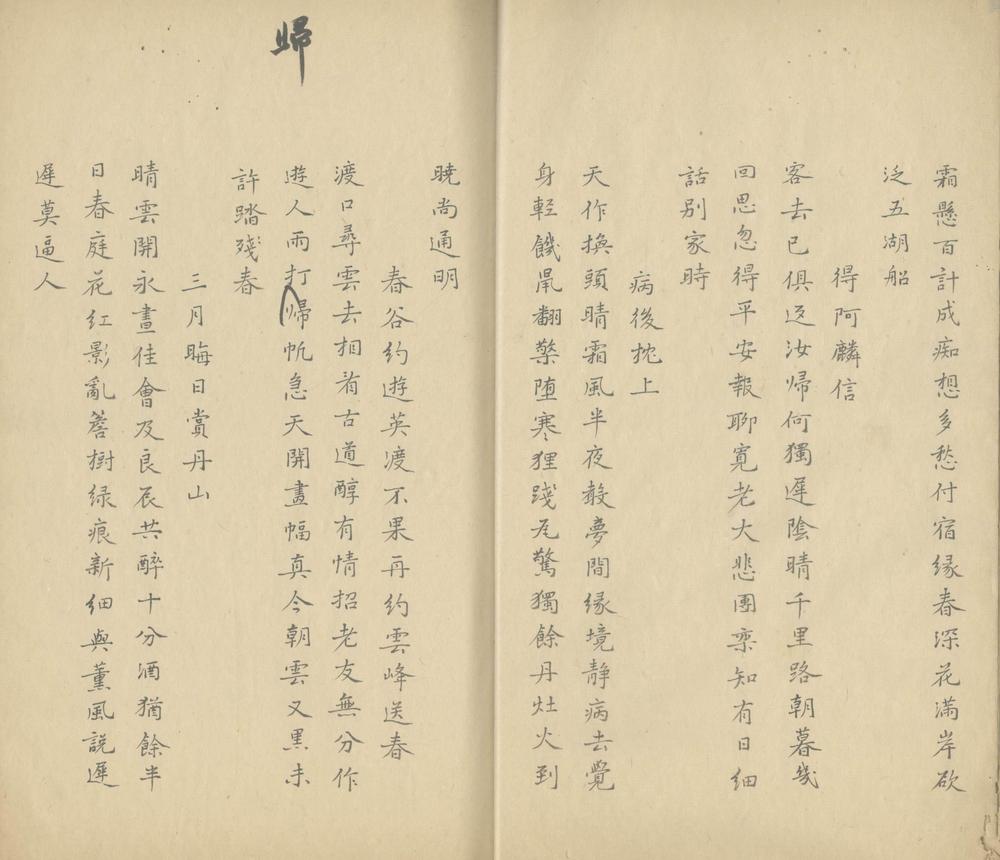 霜懸百計成痴想多愁付宿緣春深花滿岸欲
泛五湖船
得阿麟信
客去已俱返汝歸何獨遲陰晴千里路朝暮幾
回思忽得平安報聊寬老大悲團欒知有日細
話別家時
病後枕上
天作換頭晴霜風半夜聲夢間緣境靜病去覺
身輕饑鼠翻檠墮寒狸踐瓦驚獨餘丹灶火到
曉尚通明
春谷約遊英渡不果再約雲峰送春
渡口尋雲去相看古道醇有情招老友無分作
遊人雨打歸帆急天開畫幅真今朝雲又黑未
許踏殘春
三月晦日賞丹山
晴雲開永晝佳會及良辰共醉十分酒猶餘半
日春庭花紅影亂簷樹綠痕新細與薰風說遲
遲莫逼人
歸